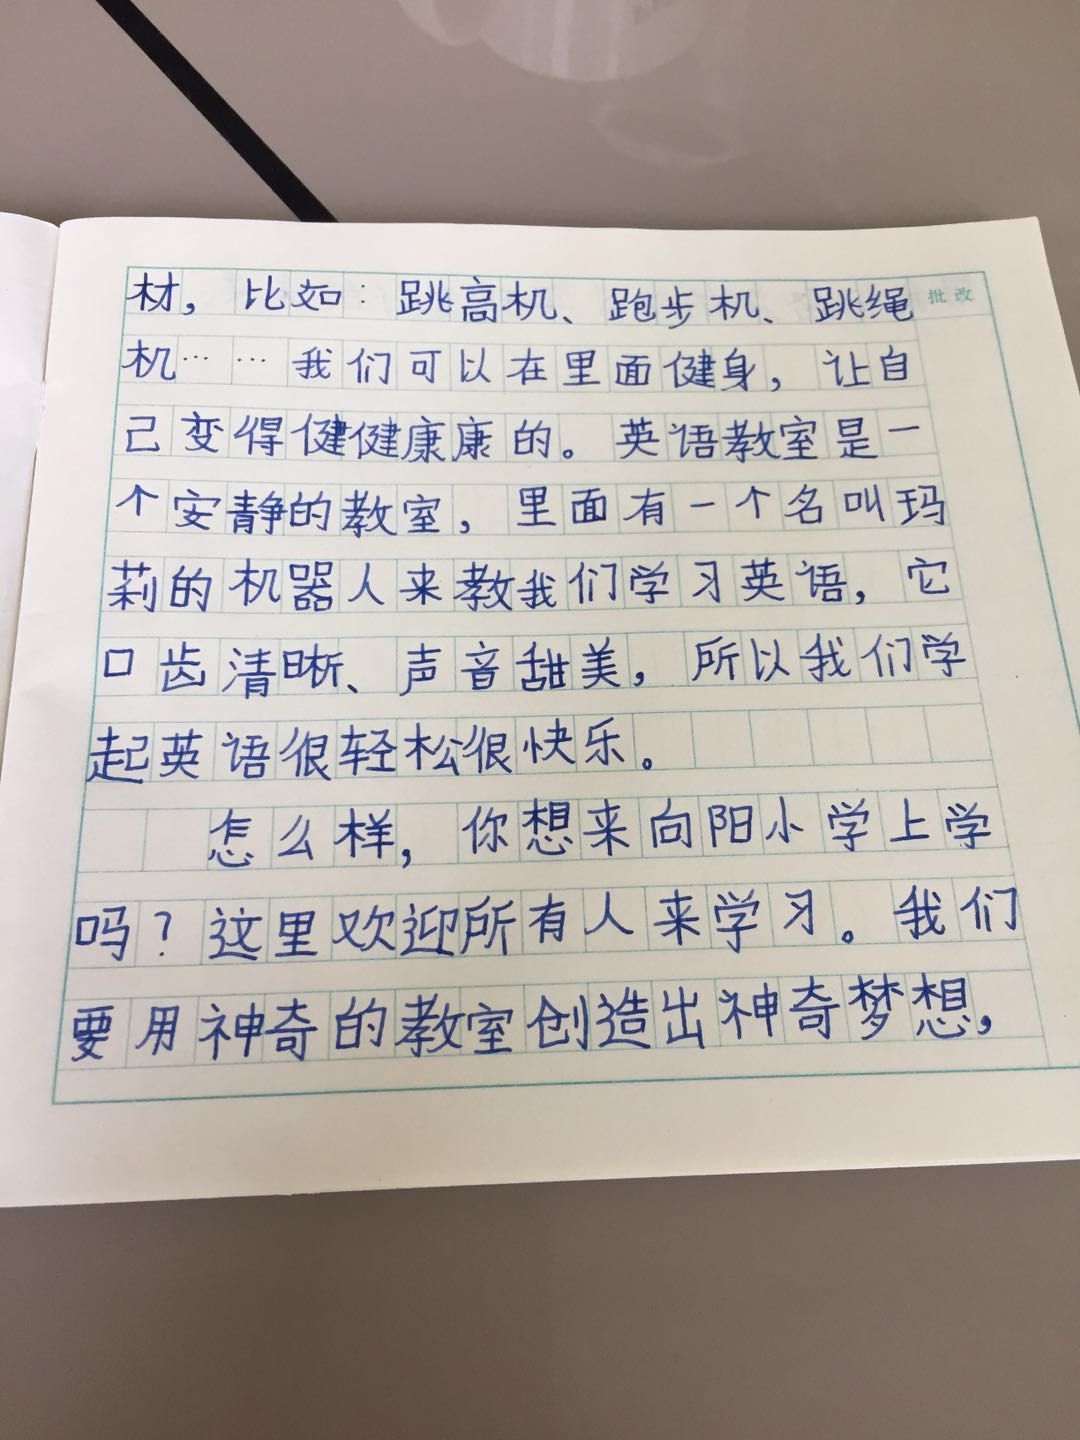 材，比如：跳高机、跑步机、跳绳
批改
机……我们可以在里面健身，让自
己变得健健康康的。英语教室是一
个安静的教室，里面有一个名叫玛
莉的机器人来教我们学习英语，它
口齿清晰、声音甜美，所以我们学
起英语很轻松很快乐。
怎么样，你想来向阳小学上学
吗？这里欢迎所有人来学习。我们
要用神奇的教室创造出神奇梦想，